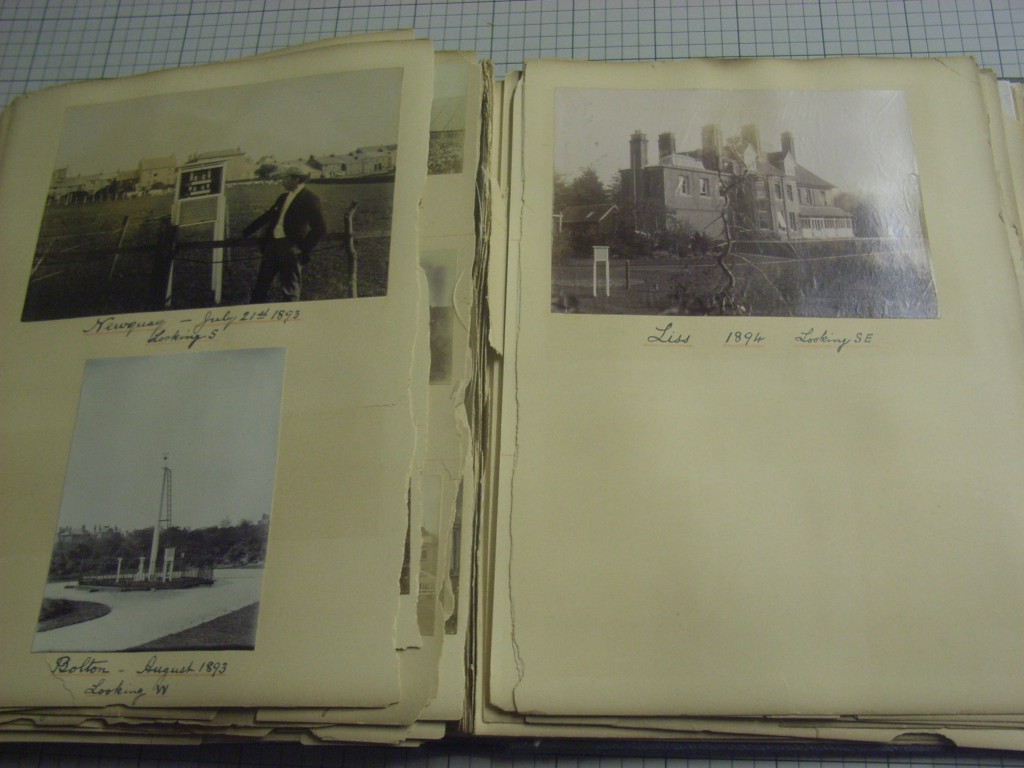 Newquay - July 21st 1893
Looking S
Bolton - August 1893
Looking W
Liss 1894 Looking SE